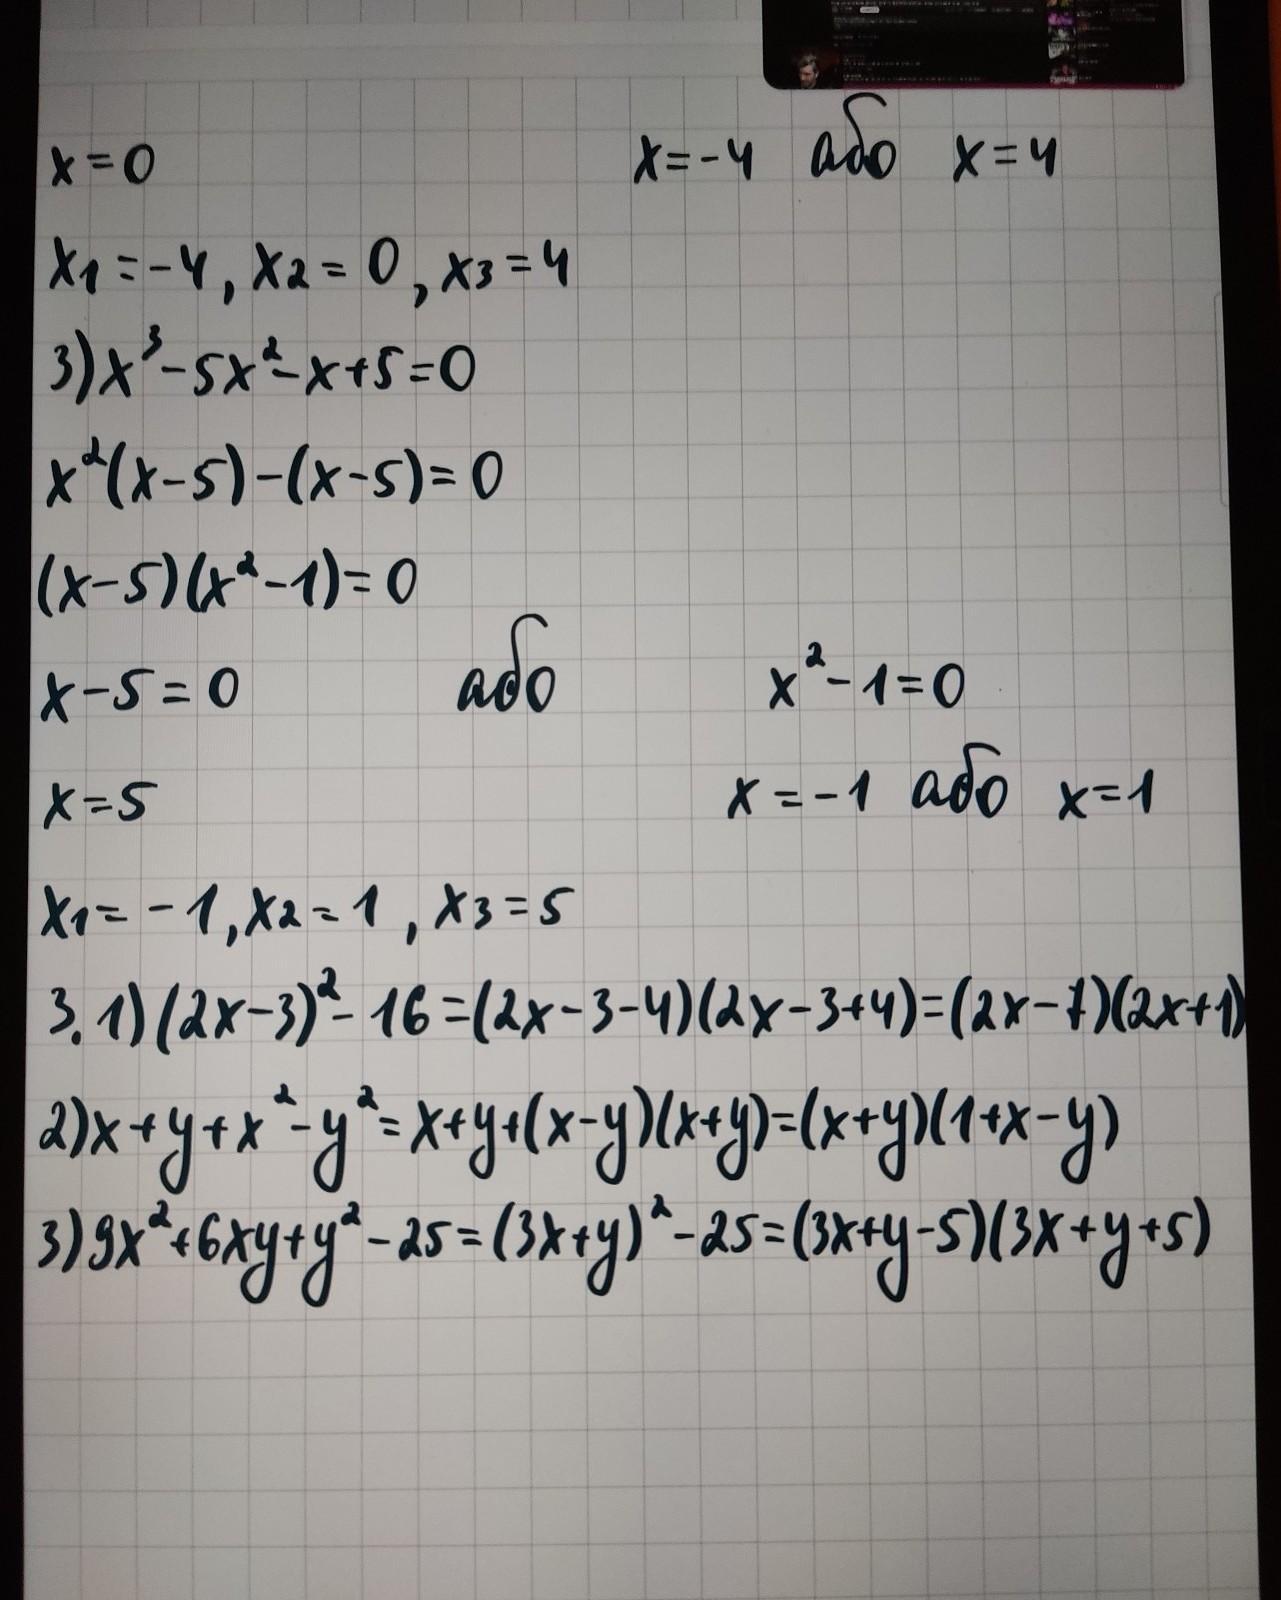 x=0 x=-4 або x=4
x1=-4, x2=0, x3=4
3) x³-5x²-x+5=0
x²(x-5)-(x-5)=0
(x-5)(x²-1)=0
x-5=0 або x²-1=0
x=5 x=-1 або x=1
x1=-1, x2=1, x3=5
3. 1) (2x-3)²-16=(2x-3-4)(2x-3+4)=(2x-7)(2x+1)
2) x+y+x²-y²=x+y+(x-y)(x+y)=(x+y)(1+x-y)
3) 9x²+6xy+y²-25=(3x+y)²-25=(3x+y-5)(3x+y+5)